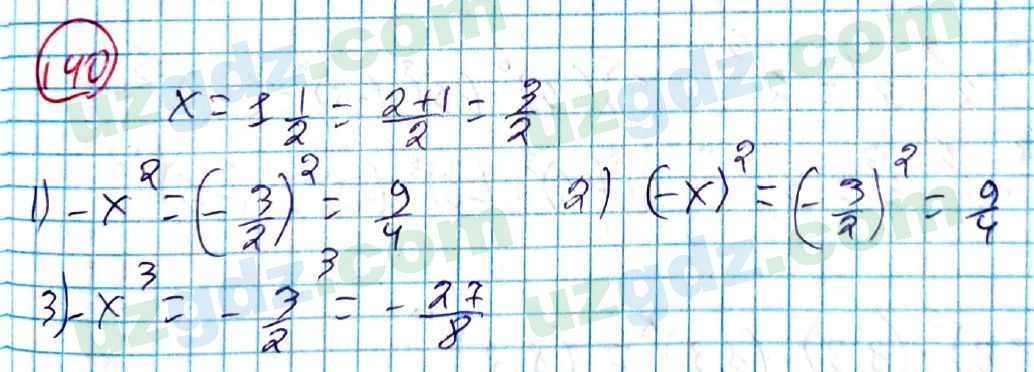 140
x = 1 1/2 = (2+1)/2 = 3/2
1) -x² = (-3/2)² = 9/4 2) (-x)² = (-3/2)² = 9/4
3) -x³ = -3/2³ = -27/8
uzgdz.com
uzgdz.com
uzgdz.com
uzgdz.com